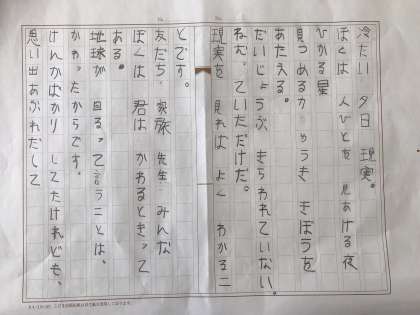 冷たい 夕日 現実。
ぼくは 人びとを 見あげる夜
ひかる星
見つめるから うき きぼうを
あたえる。
だいじょうぶ、きらわれていない。
ねむっていただけだ。
現実を 見れば よく わかるこ
とです。
友だち、家族 先生 みんな
ぼくは 君は かわるときって
ある。
地球が 回るって言うことは、
かわったからです。
けんかばかり してたけれども、
思い出 あふれだして